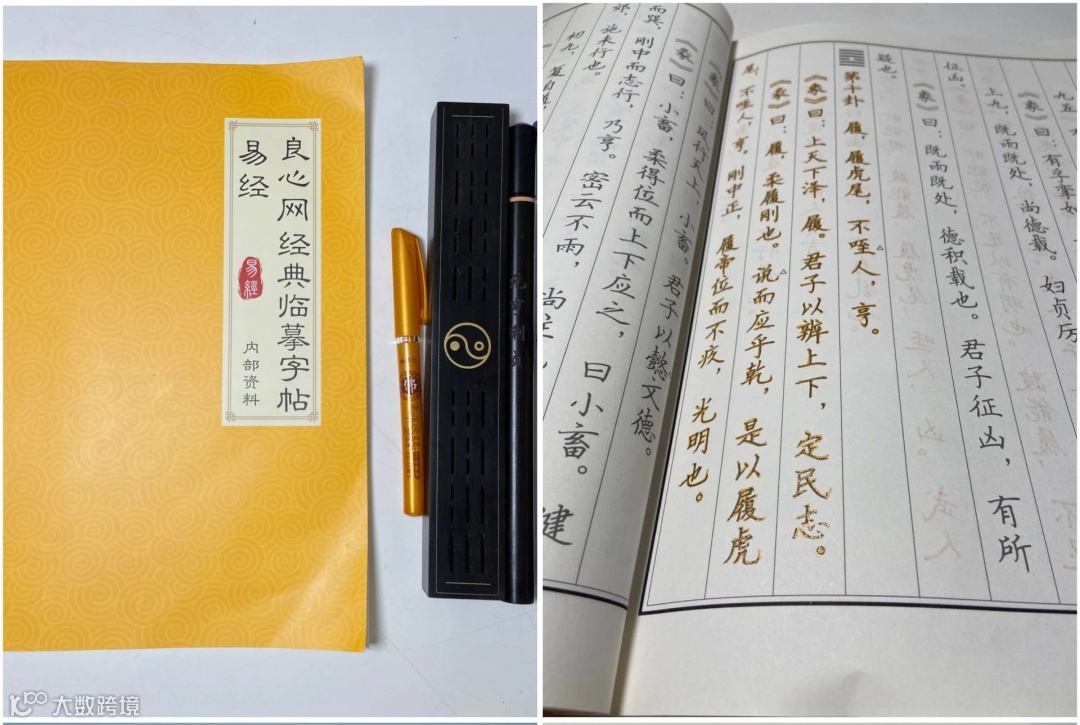 良心网经典临摹字帖
易经
易經
内部资料
元亨利贞
佛
九五
《象》曰：有孚挛如
上九，既雨既处，尚德载。妇贞厉
征凶。
《象》曰：既雨既处，德积载也。君子征凶，有所
疑也。
第十卦 履，履虎尾，不咥人，亨。
《象》曰：上天下泽，履。君子以辨上下，定民志。
《彖》曰：履，柔履刚也。说而应乎乾，是以履虎
尾，不咥人，亨。刚中正，履帝位而不疚，光明也。
《象》曰：风行天上，小畜。君子以懿文德。
《彖》曰：小畜，柔得位而上下应之，曰小畜。健
而巽，刚中而志行，乃亨。密云不雨，尚往也
郊，施未行也。
初九，复自道，
大数跨境